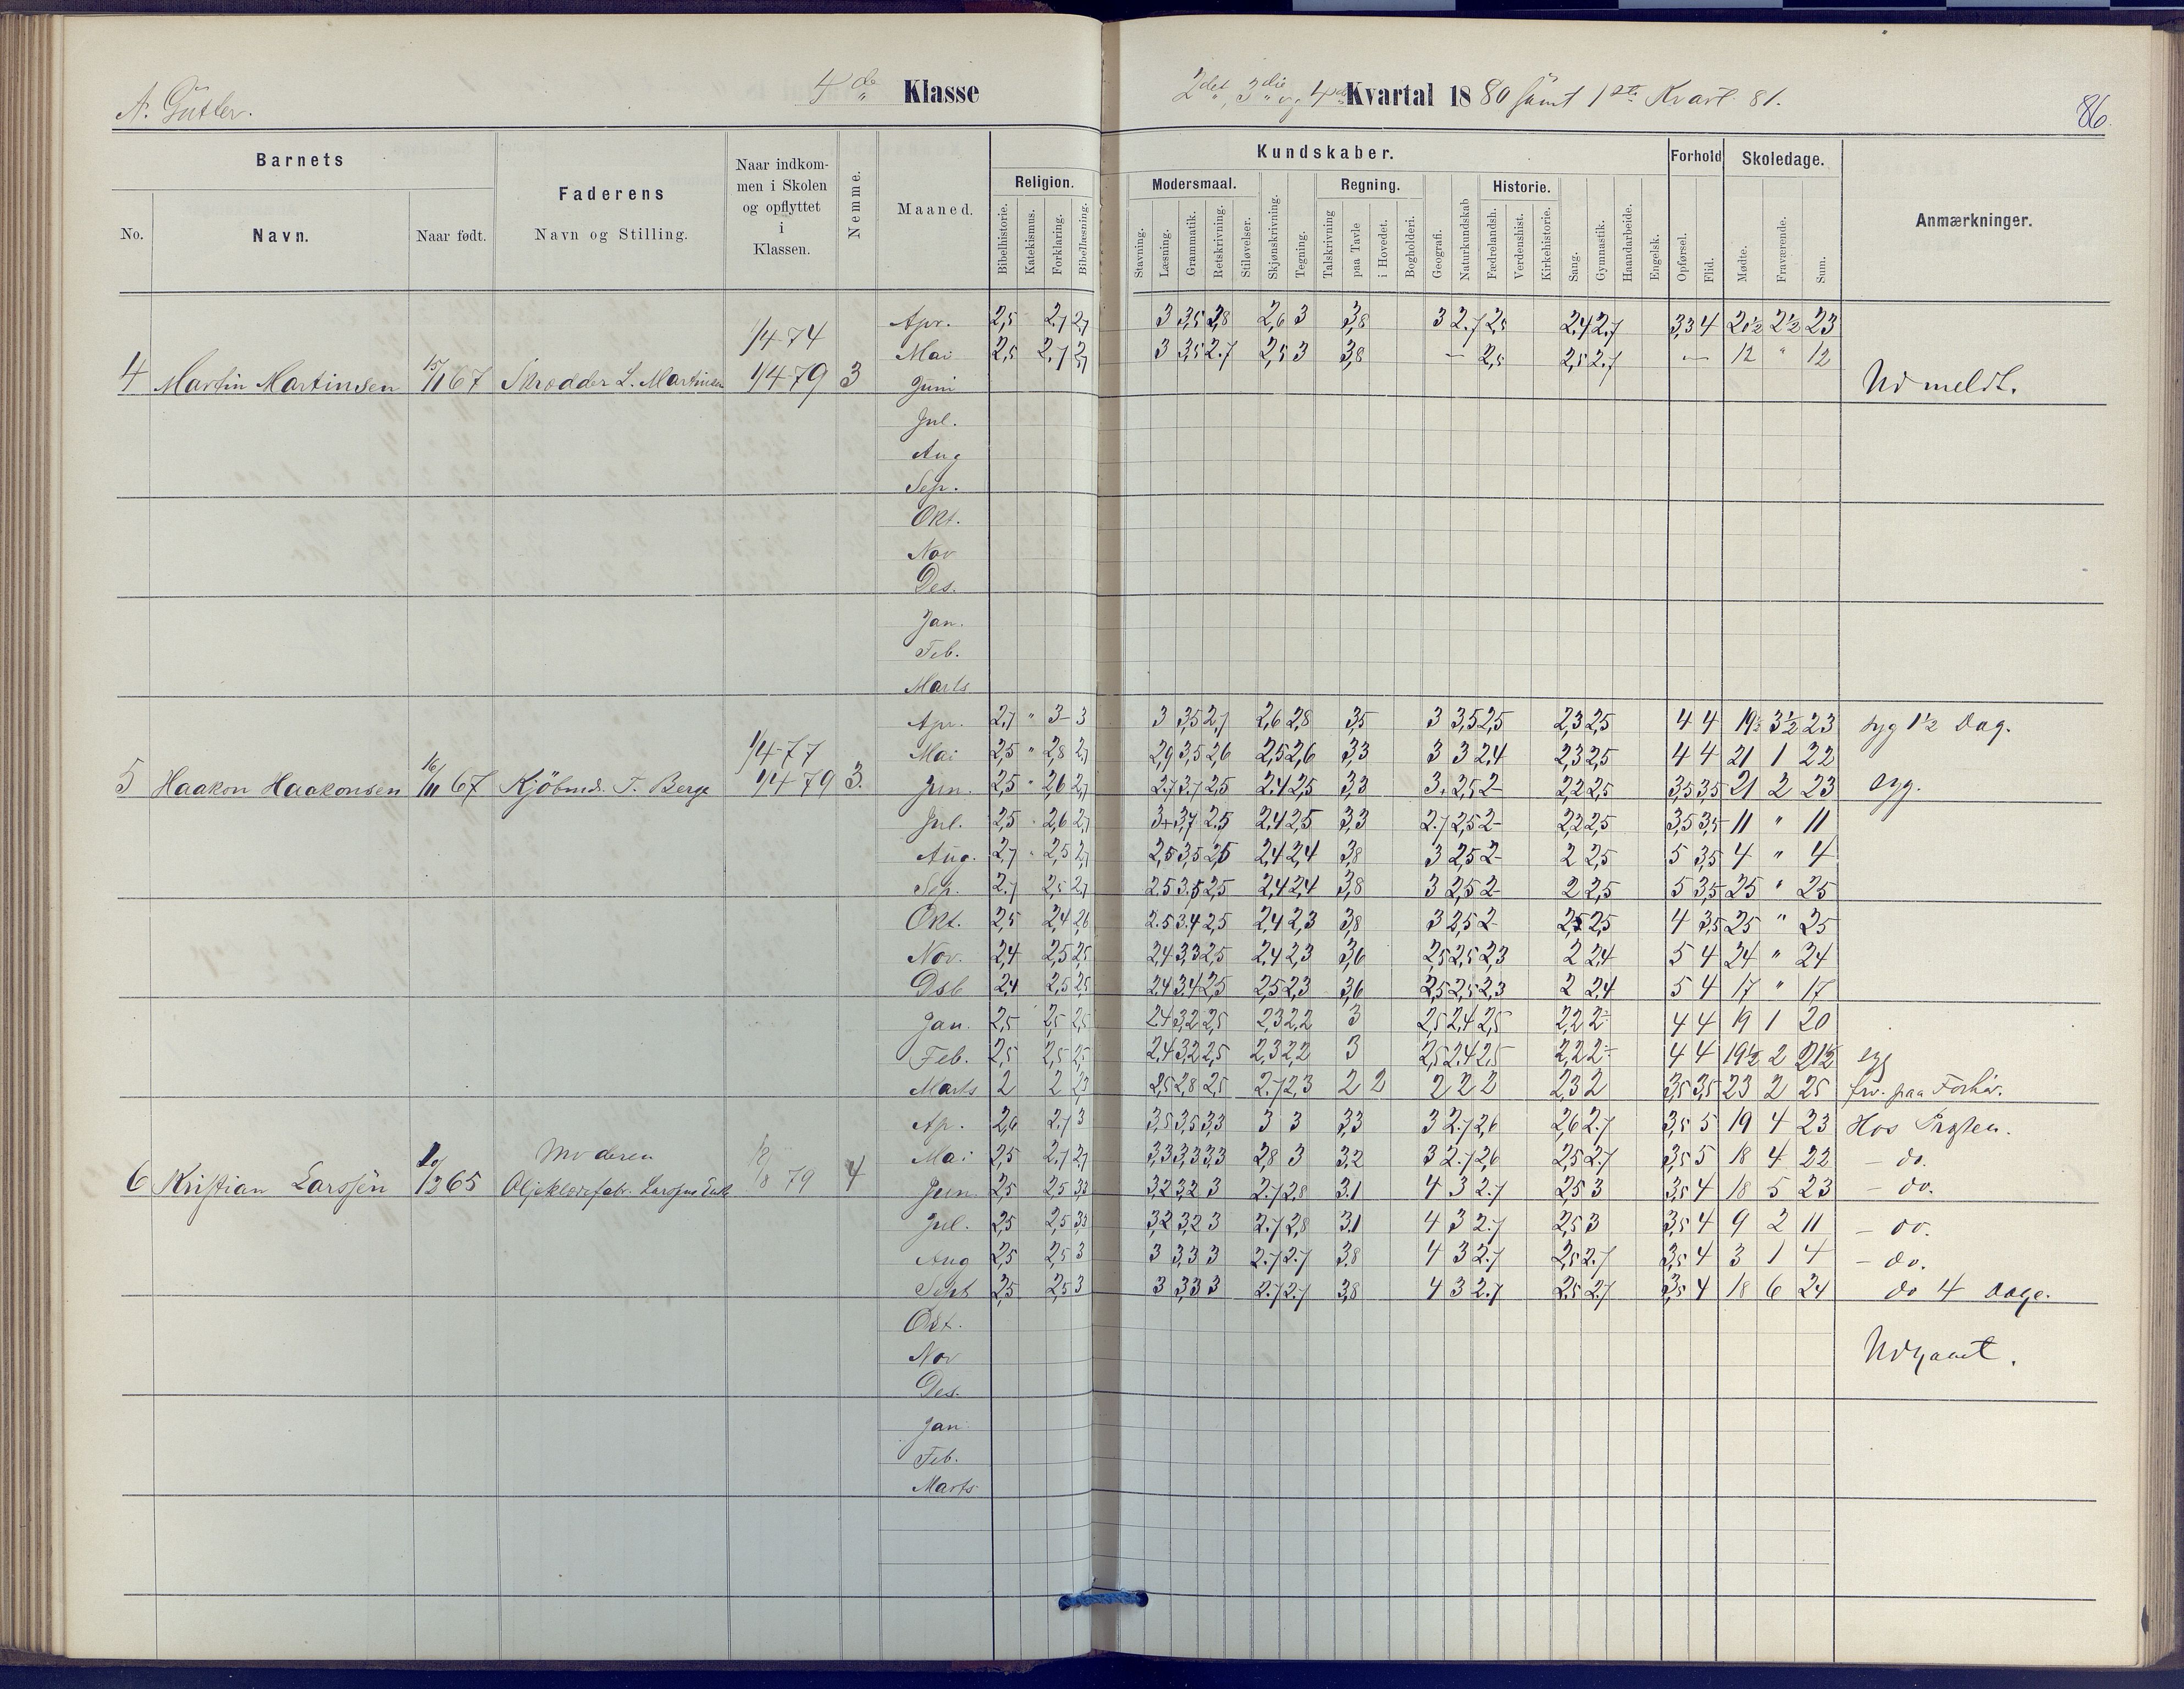 4de Klasse 2det, 3die og 4de Kvartal 1880 samt 1ste Kvart. 81.
A. Gutter.
86.
Barnets
Faderens
Navn og Stilling.
Naar indkommen i Skolen og opflyttet i Klassen.
Nemme.
Maaned.
Kundskaber.
Forhold
Skoledage.
Anmærkninger.
No.
Navn.
Naar født.
Religion.
Modersmaal.
Regning.
Historie.
Bibelhistorie.
Katekismus.
Forklaring.
Bibellæsning.
Stavning.
Læsning.
Grammatik.
Retskrivning.
Stiløvelser.
Skjønskrivning.
Tegning.
Talskrivning
paa Tavle
i Hovedet.
Bogholderi.
Geografi.
Naturkundskab
Fædrelandsh.
Verdenshist.
Kirkehistorie.
Sang.
Gymnastik.
Haandarbeide.
Engelsk.
Opførsel.
Flid.
Mødte.
Fraværende.
Sum.
4 Martin Martinsen 15/11 67 Skrædder L. Martinsen 1/4 74 1/4 79 3
Apr. 2,5 2,7 2,7 3 3,5 2,8 2,6 3 3,8 3 2,7 2,5 2,4 2,7 3,3 4 20½ 2½ 23
Mai 2,5 2,7 2,7 3 3,5 2,7 2,5 3 3,8 — 2,5 2,5 2,7 — 12 " 12
Juni Udmeldt.
Jul.
Aug
Sep.
Okt.
Nov
Des.
Jan.
Feb.
Marts
5 Haakon Haakonsen 16/11 67 Kjöbmd. T. Berge 1/4 77 1/4 79 3.
Apr. 2,7 " 3 3 3 3,5 2,7 2,6 2,8 3,5 3 3,5 2,5 2,3 2,5 4 4 19½ 3½ 23 syg 1½ Dag.
Mai 2,5 " 2,8 2,7 2,9 3,5 2,6 2,5 2,6 3,3 3 3 2,4 2,3 2,5 4 4 21 1 22
Jun. 2,5 " 2,6 2,7 2,7 3,7 2,5 2,4 2,5 3,3 3+ 2,5 2 2,2 2,5 3,5 3,5 21 2 23 syg.
Jul. 2,5 " 2,6 2,7 3+ 3,7 2,5 2,4 2,5 3,3 2,7 2,5 2 2,2 2,5 3,5 3,5 11 " 11
Aug. 2,7 " 2,5 2,7 2,5 3,5 2,5 2,4 2,4 3,8 3 2,5 2 2 2,5 5 3,5 4 " 4
Sep. 2,7 2,5 2,7 2,5 3,5 2,5 2,4 2,4 3,8 3 2,5 2 2 2,5 5 3,5 25 " 25
Okt. 2,5 2,4 2,6 2,5 3,4 2,5 2,4 2,3 3,8 3 2,5 2 2,5 2,5 4 3,5 25 " 25
Nov. 2,4 2,5 2,5 2,4 3,3 2,5 2,4 2,3 3,6 2,5 2,5 2,3 2 2,4 5 4 24 " 24
Dsb 2,4 2,5 2,5 2,4 3,4 2,5 2,5 2,3 3,6 2,5 2,5 2,3 2 2,4 5 4 17 " 17
Jan. 2,5 2,5 2,5 2,4 3,2 2,5 2,3 2,2 3 2,5 2,4 2,5 2,2 2÷ 4 4 19 1 20
Feb. 2,5 2,5 2,5 2,4 3,2 2,5 2,3 2,2 3 2,5 2,4 2,5 2,2 2÷ 4 4 19½ 2 21½ syg
Marts 2 2 2,3 2,5 2,8 2,5 2,7 2,3 2 2 2 2 2 2,3 2 3,5 3,5 23 2 25 frv. paa Forhör.
6 Kristian Larssen 20/12 65 Moderen 18/8 79 4
Ap. 2,6 2,7 3 3,5 3,5 3,3 3 3 3,3 3 2,7 2,6 2,6 2,7 3,5 5 19 4 23 Hos Presten.
Mai 2,5 2,7 2,7 3,3 3,3 3,3 2,8 3 3,2 3 2,7 2,6 2,5 2,7 3,5 5 18 4 22 — do.
Jun 2,5 2,5 3,3 3,2 3,2 3 2,7 2,8 3,1 4 3 2,7 2,5 3 3,5 4 18 5 23 — do.
Jul. 2,5 2,5 3,3 3,2 3,2 3 2,7 2,8 3,1 4 3 2,7 2,5 3 3,5 4 9 2 11 — do.
Aug 2,5 2,5 3 3 3,3 3 2,7 2,7 3,8 4 3 2,7 2,5 2,7 3,5 4 3 1 4 — do.
Sept 2,5 2,5 3 3 3,3 3 2,7 2,7 3,8 4 3 2,7 2,5 2,7 3,5 4 18 6 24 do 4 Dage.
Okt.
Nov Udgaaet.
Des.
Jan.
Feb.
Marts